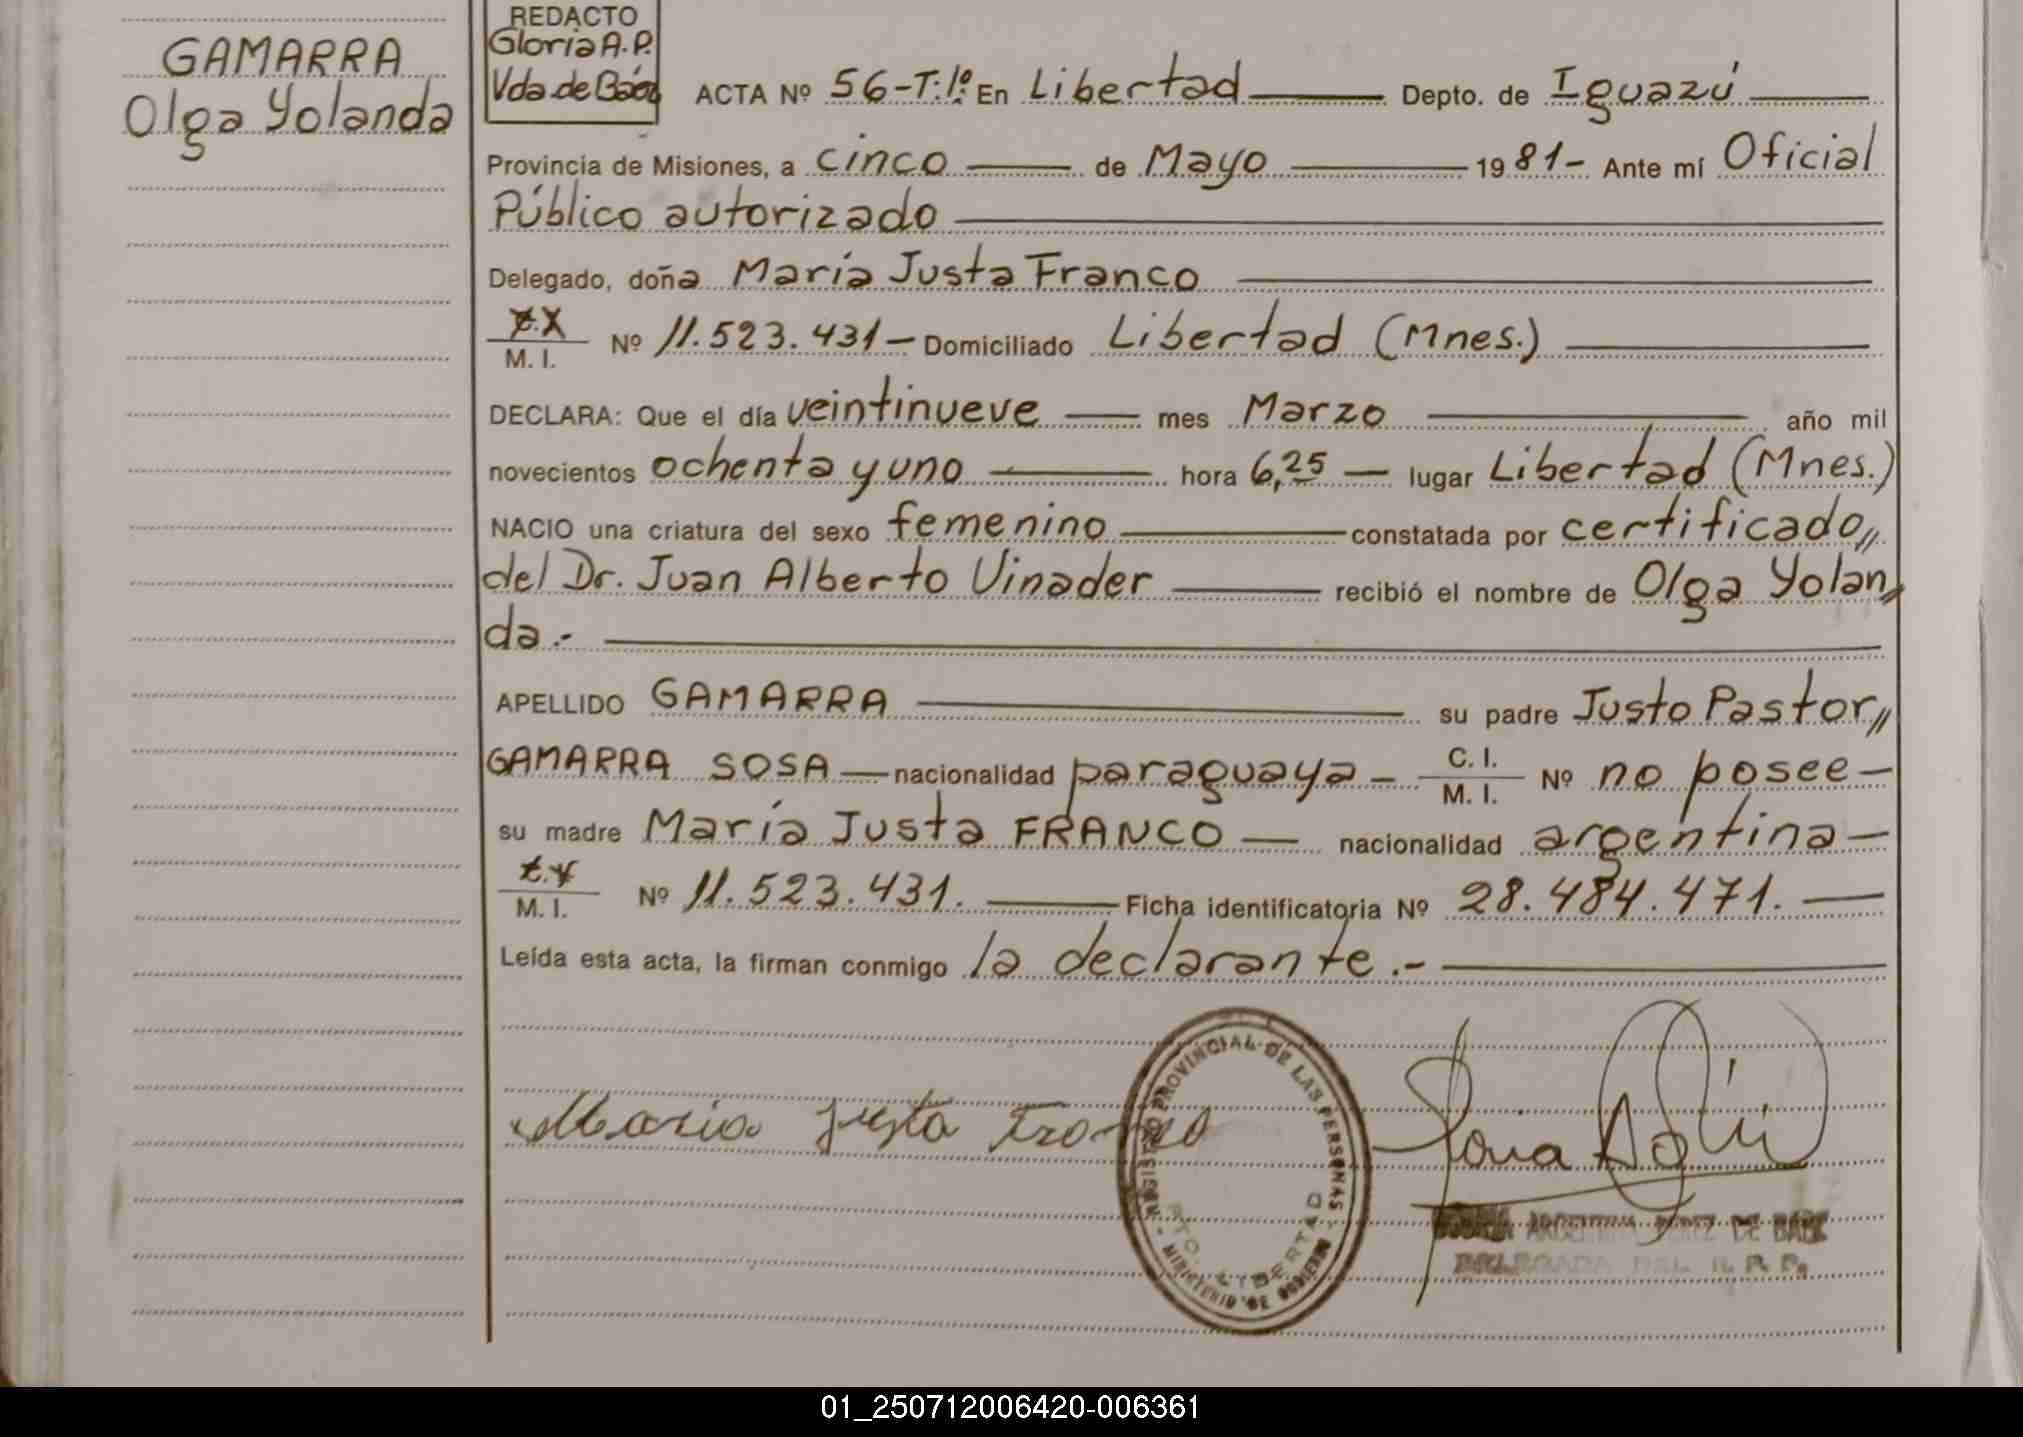 GAMARRA
Olga Yolanda
REDACTO
Gloria A. P.
Vda de Báez
ACTA Nº 56-T:1º En Libertad Depto. de Iguazú
Provincia de Misiones, a cinco de Mayo 1981- Ante mí Oficial
Público autorizado
Delegado, doña María Justa Franco
M. I. Nº 11.523.431- Domiciliado Libertad (Mnes.)
DECLARA: Que el día veintinueve mes Marzo año mil
novecientos ochenta y uno hora 6,25 lugar Libertad (Mnes.)
NACIO una criatura del sexo femenino constatada por certificado,,
del Dr. Juan Alberto Vinader recibió el nombre de Olga Yolan,,
da.-
APELLIDO GAMARRA su padre Justo Pastor,,
GAMARRA SOSA nacionalidad paraguaya - C. I. M. I. Nº no posee
su madre María Justa FRANCO nacionalidad argentina
M. I. Nº 11.523.431. Ficha identificatoria Nº 28.484.471.
Leída esta acta, la firman conmigo la declarante.-
Maria Justa Franco
REGISTRO PROVINCIAL DE LAS PERSONAS
MINISTERIO DE GOBIERNO
PTO. LIBERTAD
ARGENTINA PEREZ DE BAEZ
DELEGADA DEL R. P. P.
01_250712006420-006361